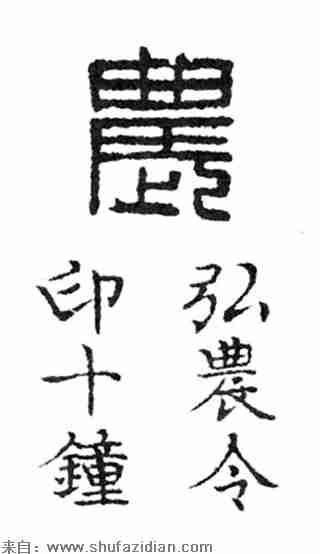 農
弘農令
印十鐘
来自：www.shufazidian.com